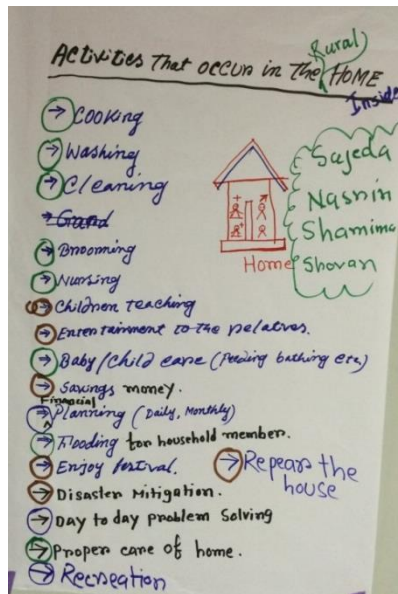 Activities That occur in The (Rural) HOME
Inside
→ Cooking
→ Washing
→ Cleaning
→ Brooming
→ Nursing
→ Children teaching
→ Entertainment to the relatives.
→ Baby/Child care (Feeding bathing etc)
→ Savings money.
→ Financial Planning (Daily, Monthly)
→ Fooding for household member.
→ Enjoy festival.
→ Disaster Mitigation.
→ Day to day problem Solving
→ Proper care of home.
→ Recreation
→ Repears the
house
Home
Sajeda
Nasrin
Shamima
Shovan